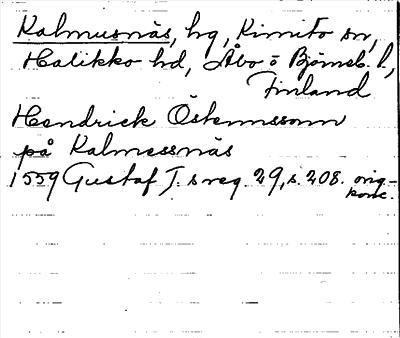 Kalmusnäs, hg, Kimito sn,
Halikko hd, Åbo o Björneb. l.,
Finland
Hendrick Östennssonn
på Kalmessnäs
1559 Gustaf I.s reg. 29, s. 208. orig-
konc.